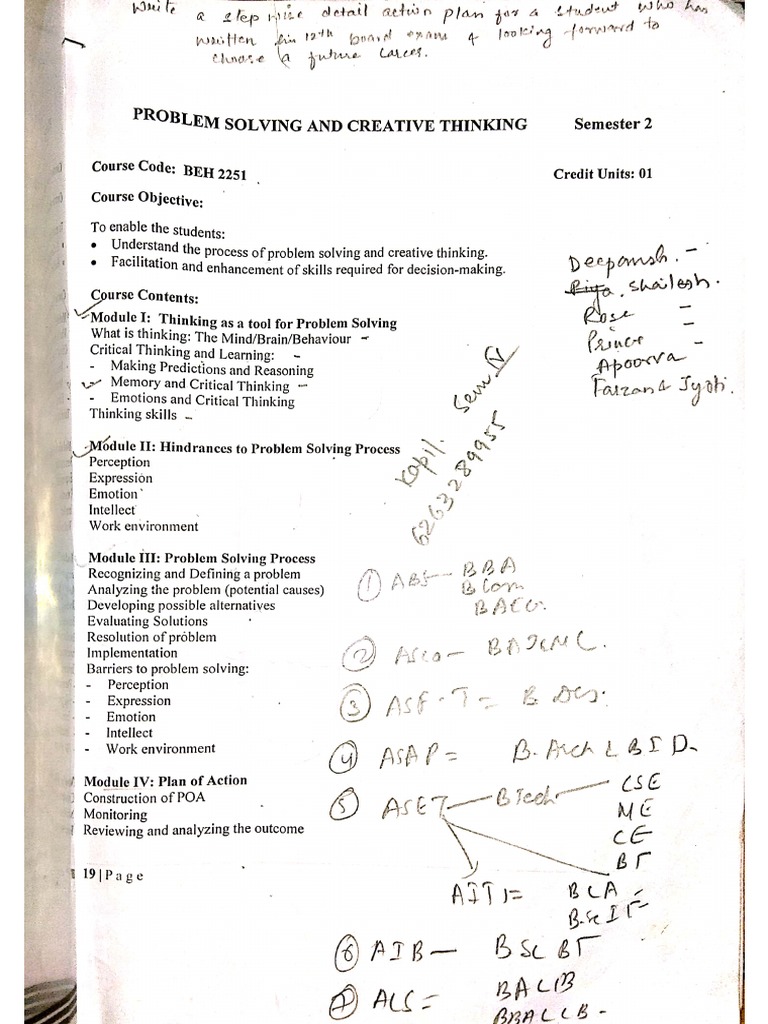 Write a step wise detail action plan for a student who has
written his 12th board exams & looking forward to
choose a future career.
PROBLEM SOLVING AND CREATIVE THINKING Semester 2
Course Code: BEH 2251
Credit Units: 01
Course Objective:
To enable the students:
• Understand the process of problem solving and creative thinking.
• Facilitation and enhancement of skills required for decision-making.
Deepansh. -
Riya. Shailesh.
Rose -
Prince -
Apoorva -
Faizan & Jyoti.
Course Contents:
Module I: Thinking as a tool for Problem Solving
What is thinking: The Mind/Brain/Behaviour -
Critical Thinking and Learning: -
- Making Predictions and Reasoning
- Memory and Critical Thinking -
- Emotions and Critical Thinking
Thinking skills -
Kapil. Sem IV
6263289955
Module II: Hindrances to Problem Solving Process
Perception
Expression
Emotion
Intellect
Work environment
Module III: Problem Solving Process
Recognizing and Defining a problem
Analyzing the problem (potential causes)
Developing possible alternatives
Evaluating Solutions
Resolution of problem
Implementation
Barriers to problem solving:
- Perception
- Expression
- Emotion
- Intellect
- Work environment
Module IV: Plan of Action
Construction of POA
Monitoring
Reviewing and analyzing the outcome
19 | Page
1 ABS - BBA
B Com
2 ASCO - BAJ&MC.
3 B Des.
4 ASAP = B. Arch & BID.
5 ASET - BTech - CSE
ME
CE
BT
AIIT = BCA -
B.Sc IT -
6 AIB - BSc BT
7 ALS = BALLB
BBALLB -